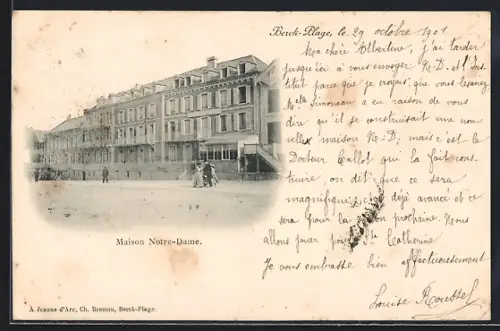 Berck-Plage, le 29 octobre 1901
Ma chère Albertine, j'ai tarder
jusqu'ici à vous envoyer N.-D. et l'Ins
titut parce que je croyais que vous l'aviez
Melle Simoneau a eu raison de vous
dire qu'il se construisait une nou
velle maison N.-D; mais c'est le
Docteur Callot qui la fait cons
truire, on dit que ce sera
magnifique, c'est déjà avancé et ce
sera pour la prochaine. Nous
allons jouer pour Ste Catherine
Je vous embrasse bien affectueusement
Louise Roussel
Maison Notre-Dame.
A Jeanne d'Arc, Ch. Bresson, Berck-Plage.